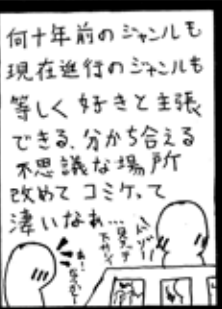 何十年前のジャンルも
現在進行のジャンルも
等しく好きと主張
できる、分かち合える
不思議な場所
改めてコミケって
凄いなぁ…